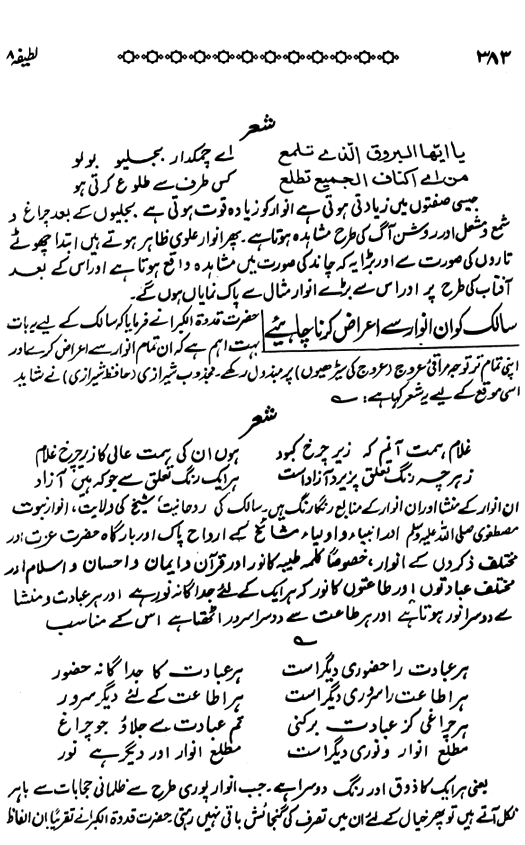 ۳۸۳ لطیفہ ۸
شعر
یا ایتھا البروق الذے تلمع اے چمکدار بجلیو بولو
من اے اکناف الجمیع تطلع کس طرف سے طلوع کرتی ہو
جیسی صفتوں میں زیادتی ہوتی ہے انوار کو زیادہ قوت ہوتی ہے بجلیوں کے بعد چراغ و
شمع و مشعل اور روشن آگ کی طرح مشاہدہ ہوتا ہے۔ پھر انوار علوی ظاہر ہوتے ہیں ابتدا چھوٹے
تاروں کی صورت سے اور بڑا یہ کہ چاند کی صورت میں مشاہدہ واقع ہوتا ہے اور اس کے بعد
آفتاب کی طرح پر اور اس سے بڑے انوار مثال سے پاک نمایاں ہوں گے۔
سالک کو ان انوار سے اعراض کرنا چاہئیے حضرت قدوۃ الکبرا نے فرمایا کہ سالک کے لیے یہ بات
بہت اہم ہے کہ ان تمام انوار سے اعراض کرے اور
اپنی تمام تر توجہ مراقئ عروج (عروج کی سیڑھیوں) پر مبذول رکھے۔ مجذوب شیرازی (حافظ شیرازی) نے شاید
اسی موقع کے لیے یہ شعر کہا ہے:
شعر
غلام ہمت آنیم کہ زیر چرخ کبود ہوں ان کی ہمت عالی کا زیر چرخ غلام
زہرچہ رنگ تعلق پزیرد آزاد است ہر ایک رنگ تعلق سے جو کہ ہیں آزاد
ان انوار کے منشا اور ان انوار کے منابع رنگارنگ ہیں۔ سالک کی روحانیت شیخ کی ولایت، انوار نبوت
مصطفوی صلی اللہ علیہ وسلم اور انبیاء و اولیاء مشائخ کے ارواح پاک اور بارگاہ حضرت عزت اور
مختلف ذکروں کے انوار، خصوصاً کلمہ طیبہ کا نور اور قرآن و ایمان و احسان و اسلام اور
مختلف عبادتوں اور طاعتوں کا نور کہ ہر ایک کے لئے جداگانہ نور ہے اور ہر عبادت و منشا
سے دوسرا نور ہوتا ہے اور ہر طاعت سے دوسرا سرور اٹھتا ہے اس کے مناسب
ہر عبادت را حضوری دیگر است ہر عبادت کا جداگانہ حضور
ہر اطاعت را سروری دیگر است ہر اطاعت کے لئے دیگر سرور
ہر چراغی کز عبادت برکنی تم عبادت سے جلاؤ جو چراغ
مطلع انوار و نوری دیگر است مطلع انوار اور دیگر ہے نور
یعنی ہر ایک کا ذوق اور رنگ دوسرا ہے۔ جب انوار پوری طرح سے ظلمانی حجابات سے باہر
نکل آتے ہیں تو پھر خیال کے لئے ان میں تصرف کی گنجائش باقی نہیں رہتی۔ حضرت قدوۃ الکبرا نے تقریباً ان الفاظ